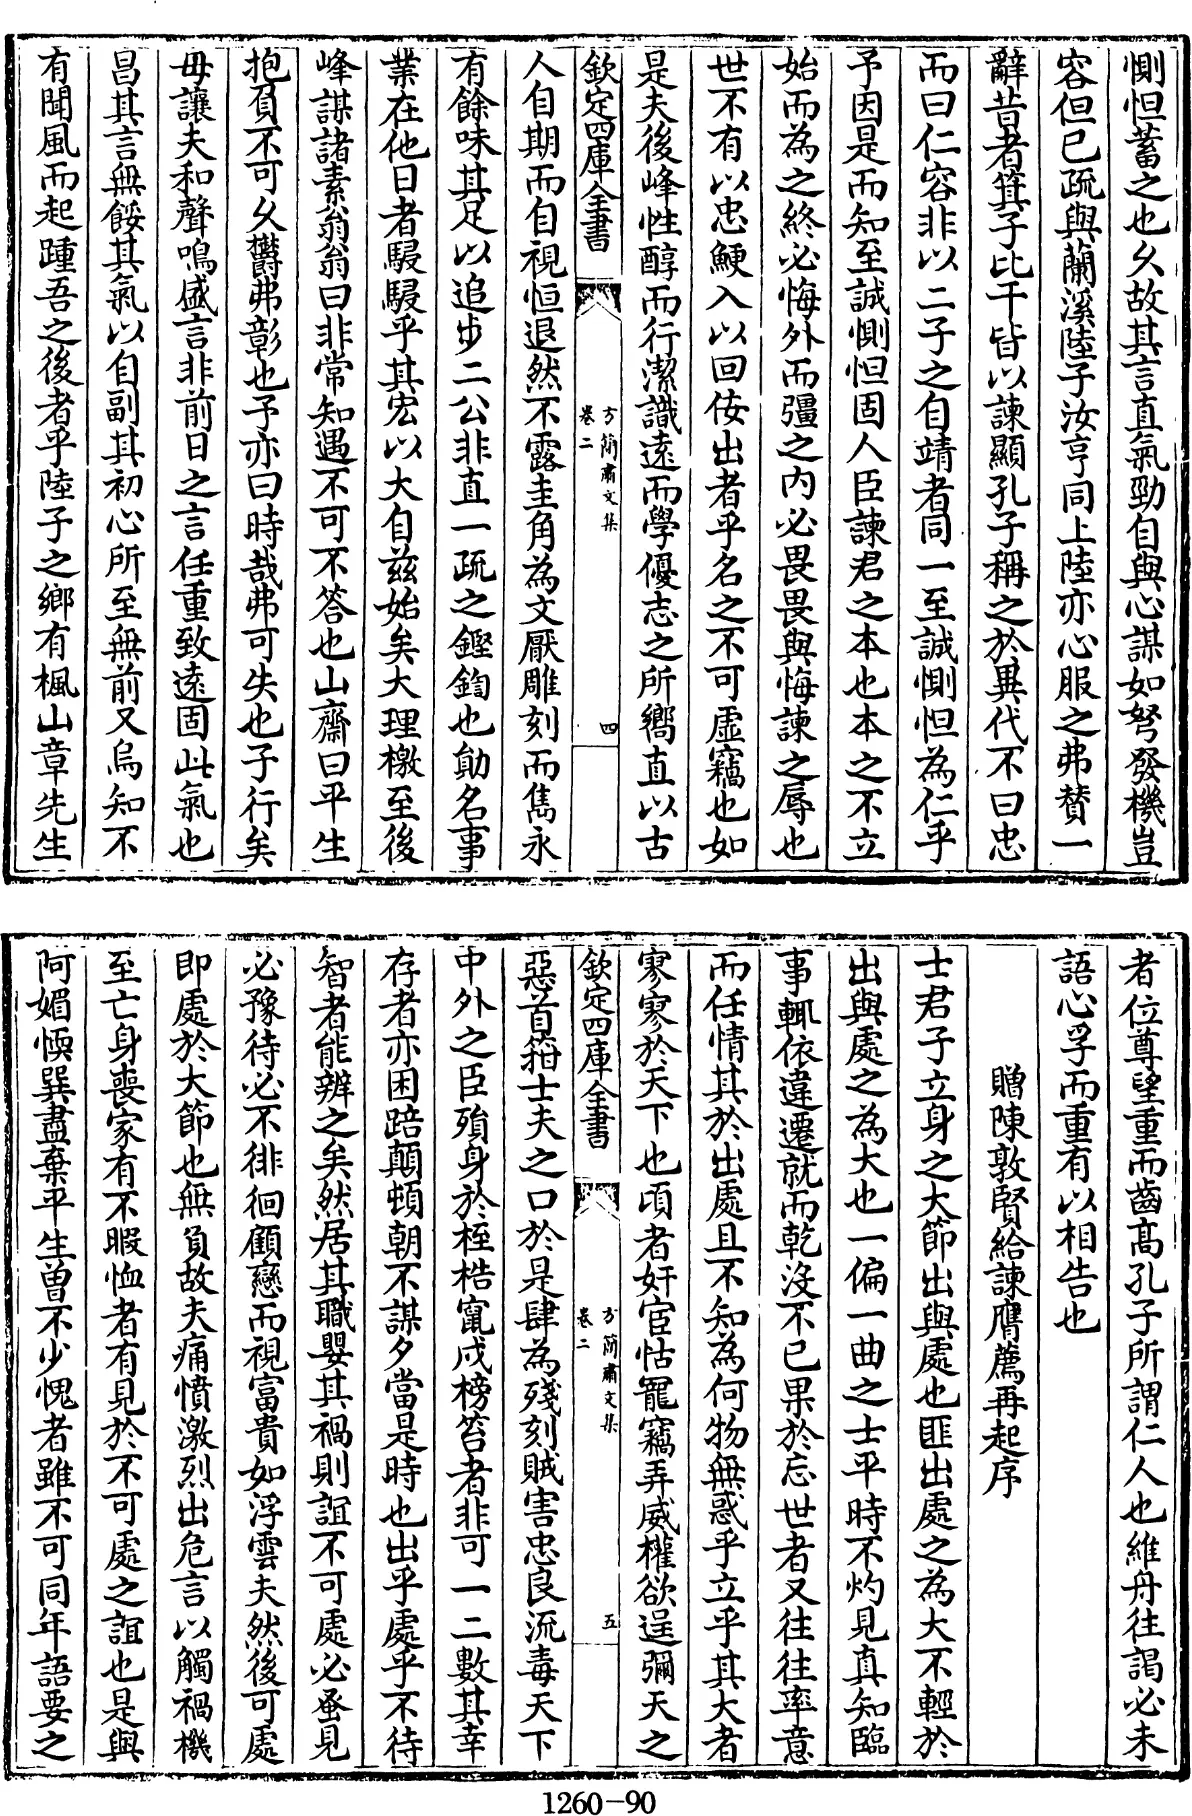 惻怛蓄之也久故其言直氣勁自與心謀如弩發機豈
容但已疏與蘭溪陸子汝亨同上陸亦心服之弗賛一
辭昔者箕子比干皆以諫顯孔子稱之於異代不曰忠
而曰仁容非以二子之自靖者同一至誠惻怛為仁乎
予因是而知至誠惻怛固人臣諫君之本也本之不立
始而為之終必悔外而彊之内必畏畏與悔諫之辱也
世不有以忠鯁入以回佞出者乎名之不可虛竊也如
是夫後峰性醇而行潔識遠而學優志之所嚮直以古
欽定四庫全書
方簡肅文集
卷二
四
人自期而自視恒退然不露圭角為文厭雕刻而雋永
有餘味其足以追步二公非直一疏之鏗鍧也勛名事
業在他日者駸駸乎其宏以大自兹始矣大理檄至後
峰謀諸素翁翁曰非常知遇不可不答也山齋曰平生
抱負不可久欝弗彰也予亦曰時哉弗可失也子行矣
毋讓夫和聲鳴盛言非前日之言任重致逺固此氣也
昌其言無餒其氣以自副其初心所至無前又烏知不
有聞風而起踵吾之後者乎陸子之鄉有楓山章先生
者位尊望重而齒高孔子所謂仁人也維舟往謁必未
語心孚而重有以相告也
贈陳敦賢給諫膺薦再起序
士君子立身之大節出與處也匪出處之為大不輕於
出與處之為大也一偏一曲之士平時不灼見真知臨
事輒依違遷就而乾没不已果於忘世者又往往率意
而任情其於出處且不知為何物無惑乎立乎其大者
寥寥於天下也頃者奸宦怙寵竊弄威權欲逞彌天之
欽定四庫全書
方簡肅文集
卷二
五
惡首箝士夫之口於是肆為殘刻賊害忠良流毒天下
中外之臣殞身於桎梏竄戍榜笞者非可一二數其幸
存者亦困踣顛頓朝不謀夕當是時也出乎處乎不待
智者能辨之矣然居其職嬰其禍則誼不可處必蚤見
必豫待必不徘徊顧戀而視富貴如浮雲夫然後可處
即處於大節也無負故夫痛憤激烈出危言以觸禍機
至亡身喪家有不暇恤者有見於不可處之誼也是與
阿媚愞巽盡棄平生曽不少愧者雖不可同年語要之
1260-90